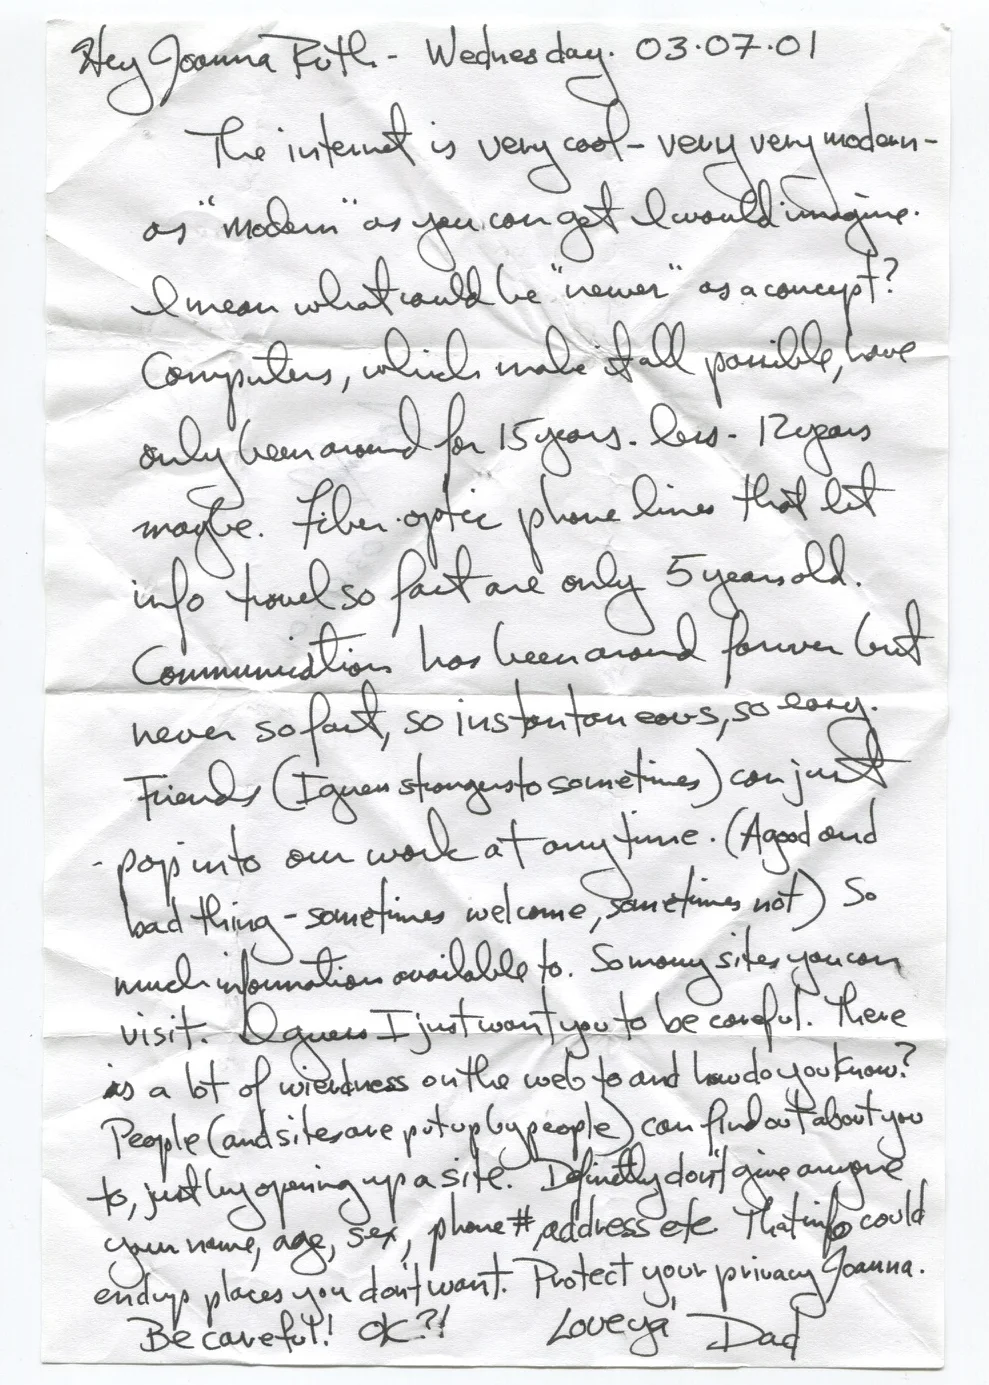 Hey Joanna Ruth - Wednesday. 03.07.01
The internet is very cool - very very modern -
as "modern" as you can get I would imagine.
I mean what could be "newer" as a concept?
Computers, which make it all possible, have
only been around for 15 years. less - 12 years
maybe. Fiber-optic phone lines that let
info travel so fast are only 5 years old.
Communication has been around forever but
never so fast, so instantaneous, so easy.
Friends (I guess strangers to sometimes) can just
pop into our work at any time. (A good and
bad thing - sometimes welcome, sometimes not) So
much information available to. So many sites you can
visit. I guess I just want you to be careful. There
is a lot of wierdness on the web to and how do you know?
People (and sites are put up by people) can find out about you
to, just by opening up a site. Definetly don't give anyone
your name, age, sex, phone #, address etc. That info could
end up places you don't want. Protect your privacy Joanna.
Be careful! OK?! Love ya' Dad